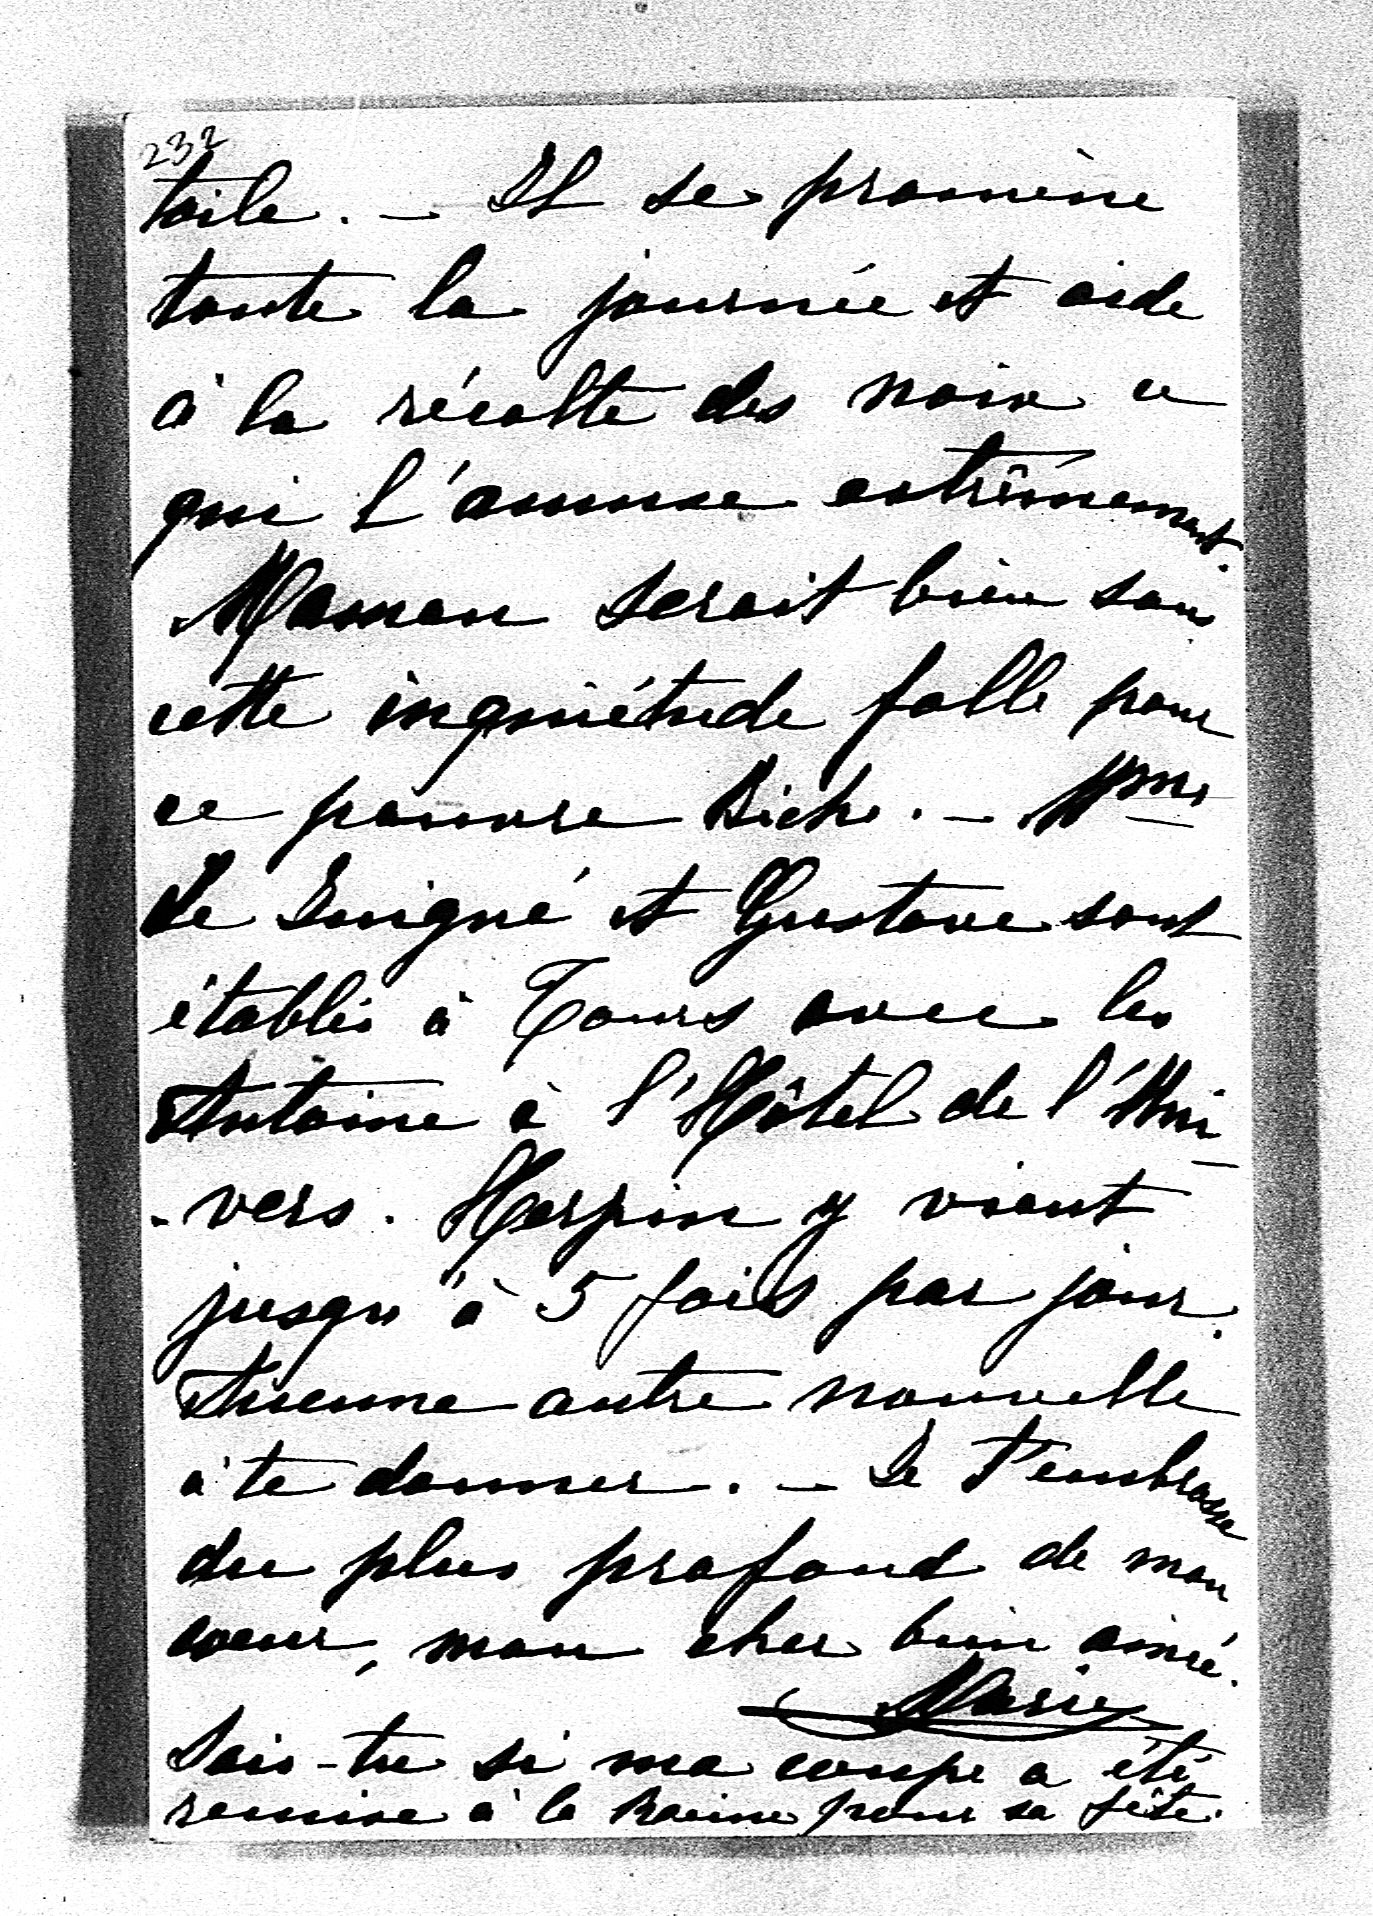 232
toile. — Il se promène
toute la journée et aide
à la récolte des noix ce
qui l'amuse extrêmement.
Maman serait bien sans
cette inquiétude folle pour
ce pauvre Biche. — Mme
de Juigné et Gustave sont
établis à Tours avec les
Antoine à l'Hôtel de l'Uni
-vers. Herpin y vient
jusqu'à 5 fois par jour.
Aucune autre nouvelle
à te donner. — Je t'embrasse
du plus profond de mon
coeur, mon cher bien aimé.
Marie
Sais-tu si ma coupe a été
remise à la Reine pour sa fête.